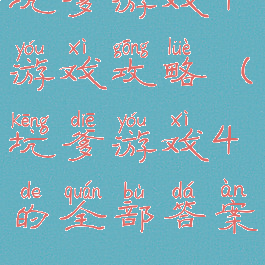 坑爹游戏4
yóu xì gōng lüè
游戏攻略(
kēng diē yóu xì
坑爹游戏4
de quán bù dá àn
的全部答案